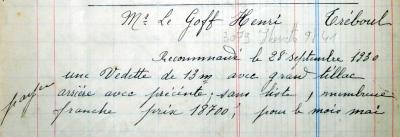 Mr Le Goff Henri Tréboul
Recommandé le 28 septembre 1930
une Vedette de 13m avec grand tillac
arrière avec préceinte, sans liste, membrure
franche prix 18700f pour le mois mai
payée